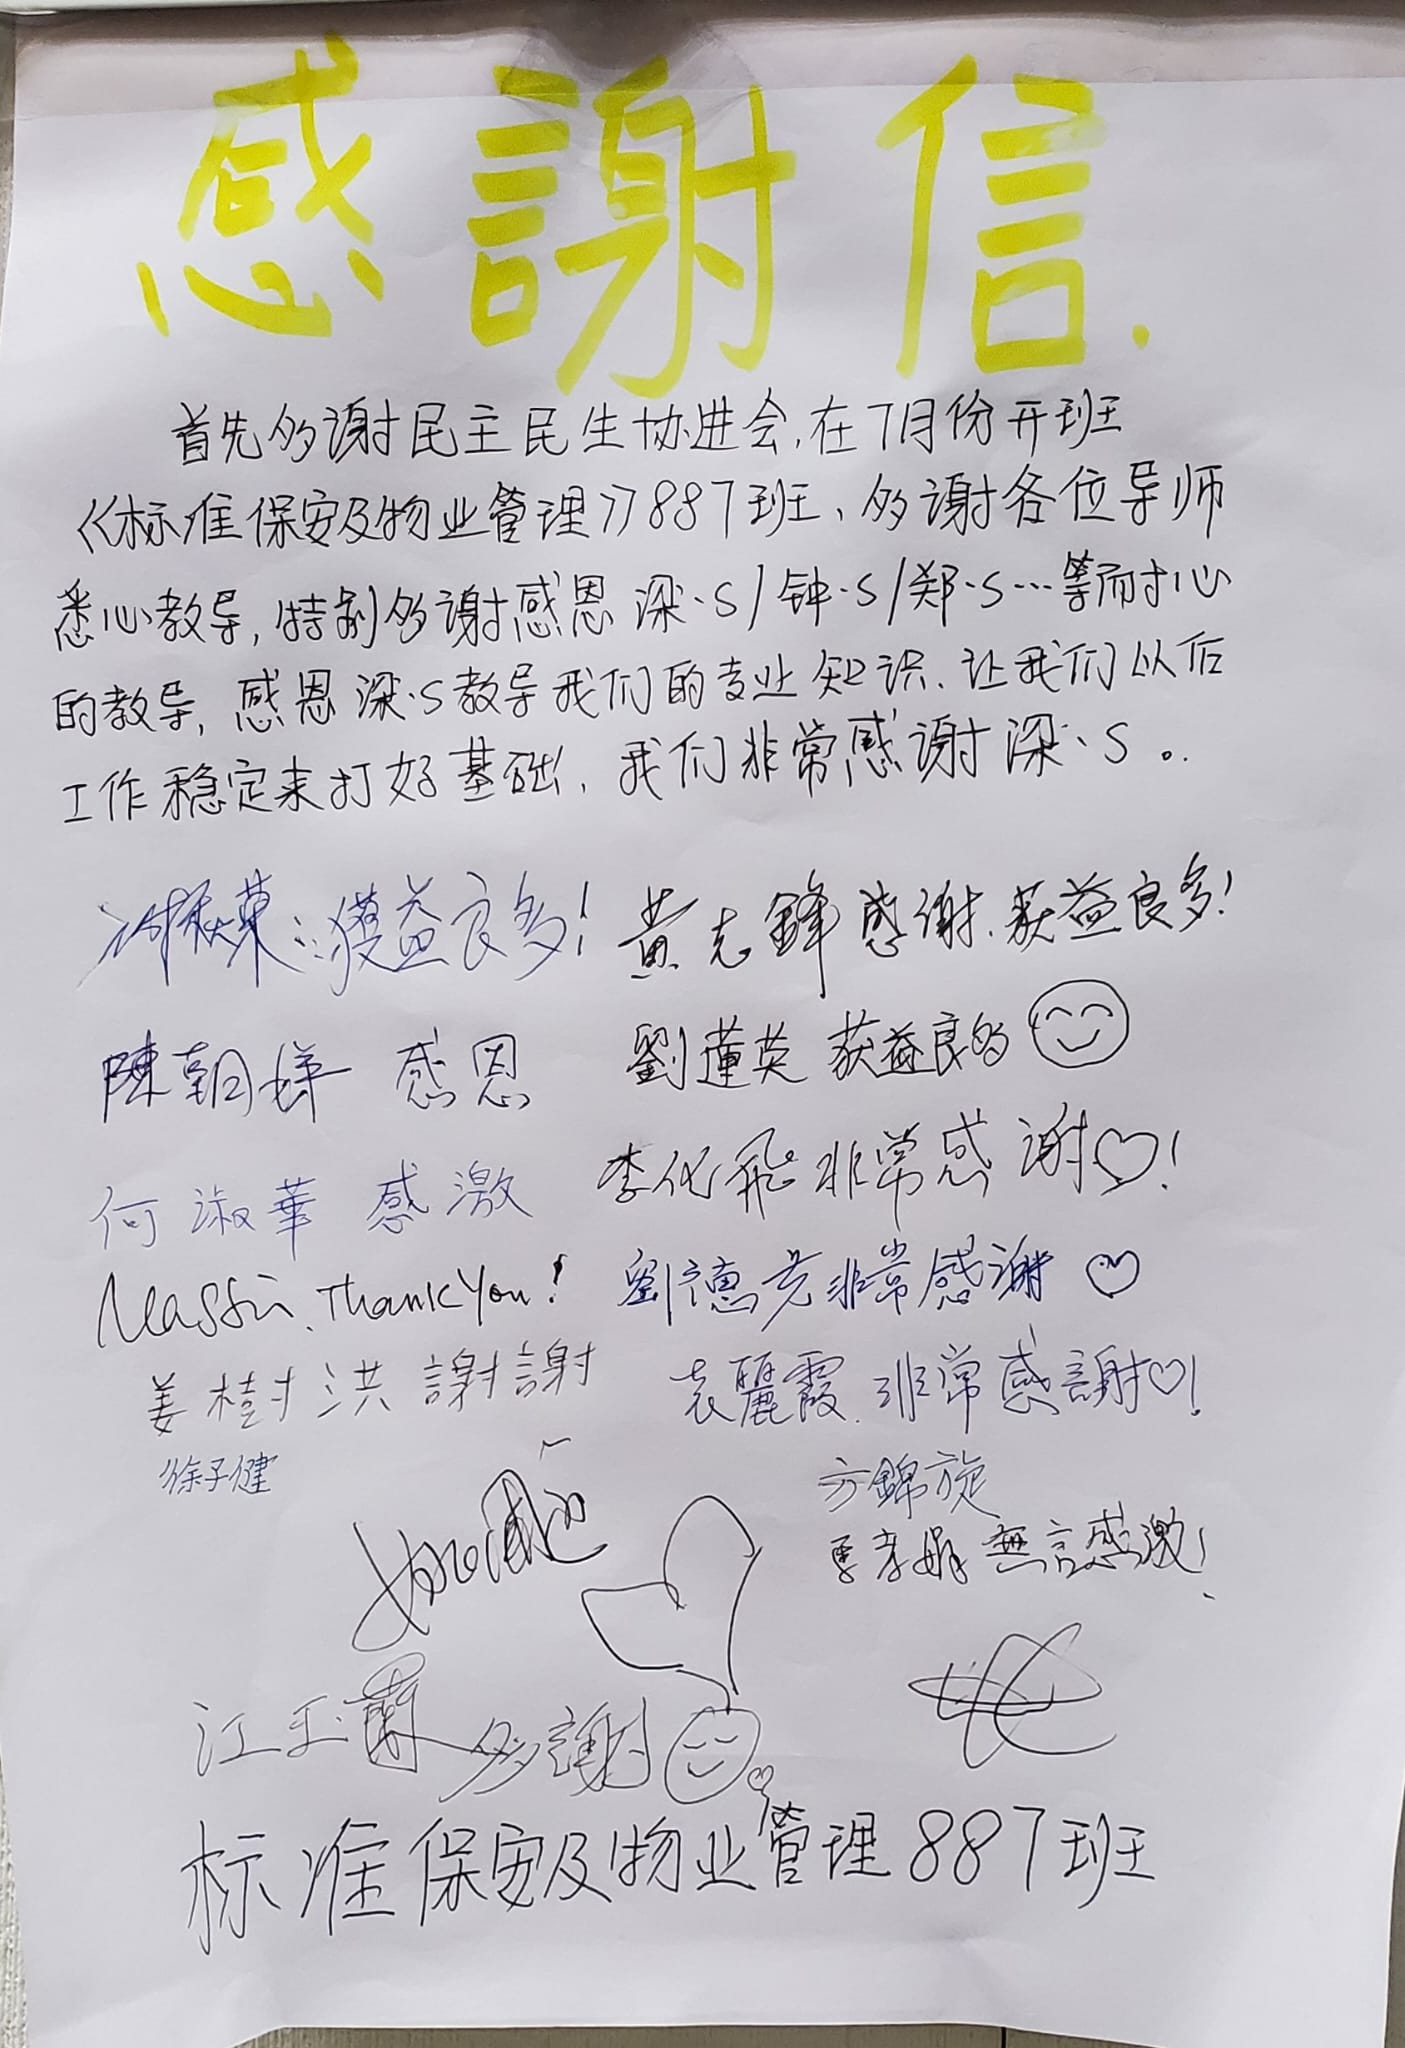 感謝信.
首先多谢民主民生协进会,在7月份开班
《标准保安及物业管理》887班、多谢各位导师
悉心教导,特别多谢感恩深·S/钟·S/郑·S…等耐心
的教导,感恩深·S教导我们的专业知识.让我们以后
工作稳定来打好基础,我们非常感谢深·S。
獲益良多!
黄志鋒感谢.获益良多!
陳朝 感恩
劉蓮英 获益良多
何淑華 感激
李化飛非常感谢!
Thank You!
劉德芳非常感謝
姜樹洪謝謝
袁麗霞.非常感謝!
徐子健
方錦旋
無言感激!
江玉蘭 多謝
标准保安及物业管理887班